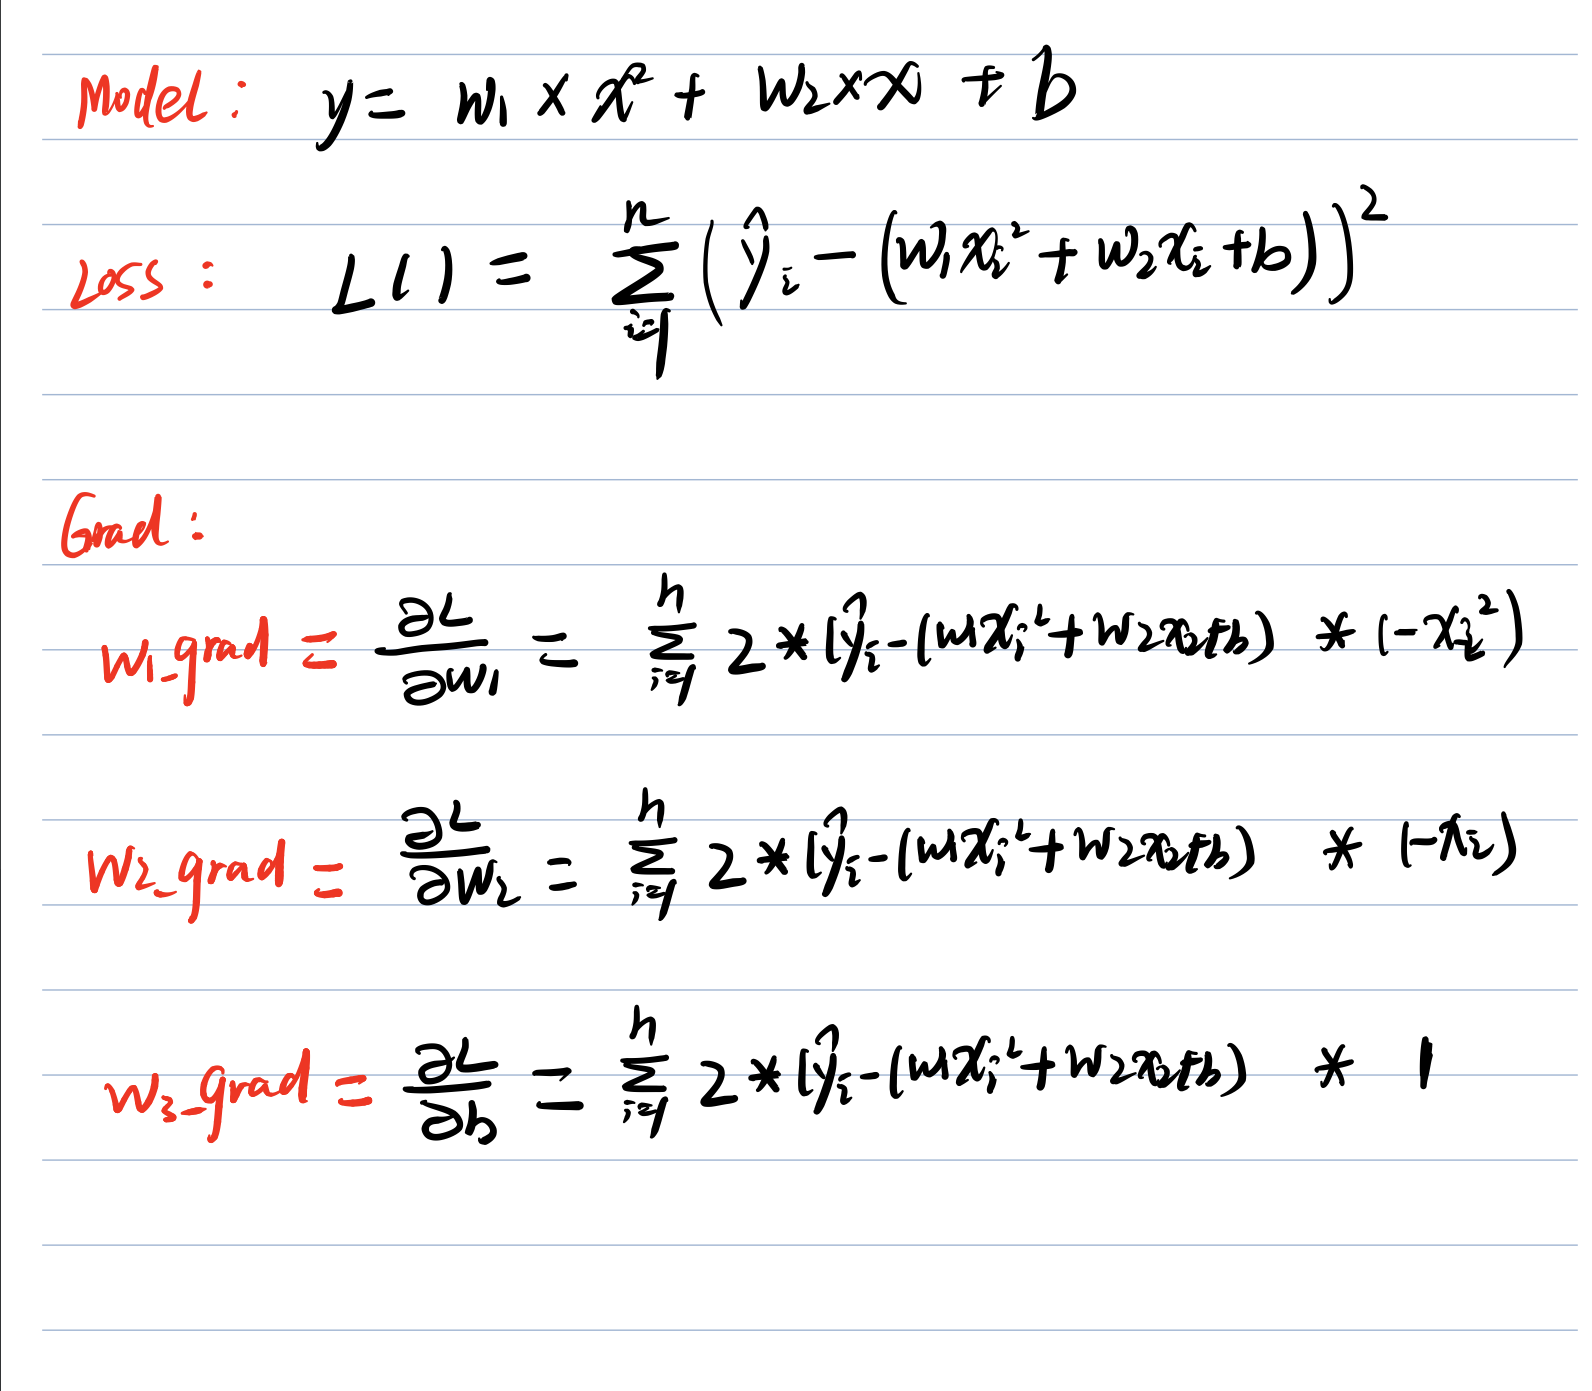 Model: y = w₁ × x² + w₂ × x + b
Loss: L( ) = ∑ᵢ₌₁ⁿ (ŷᵢ - (w₁xᵢ² + w₂xᵢ + b))²
Grad:
w₁_grad = ∂L/∂w₁ = ∑ᵢ₌₁ⁿ 2 * (ŷᵢ - (w₁xᵢ² + w₂xᵢ + b) * (-xᵢ²)
w₂_grad = ∂L/∂w₂ = ∑ᵢ₌₁ⁿ 2 * (ŷᵢ - (w₁xᵢ² + w₂xᵢ + b) * (-xᵢ)
w₃_grad = ∂L/∂b = ∑ᵢ₌₁ⁿ 2 * (ŷᵢ - (w₁xᵢ² + w₂xᵢ + b) * 1